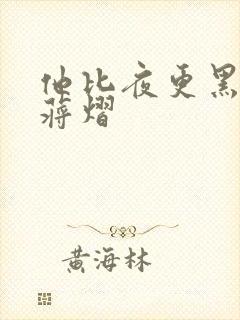 他比夜更黑
蒋熠
黄海林